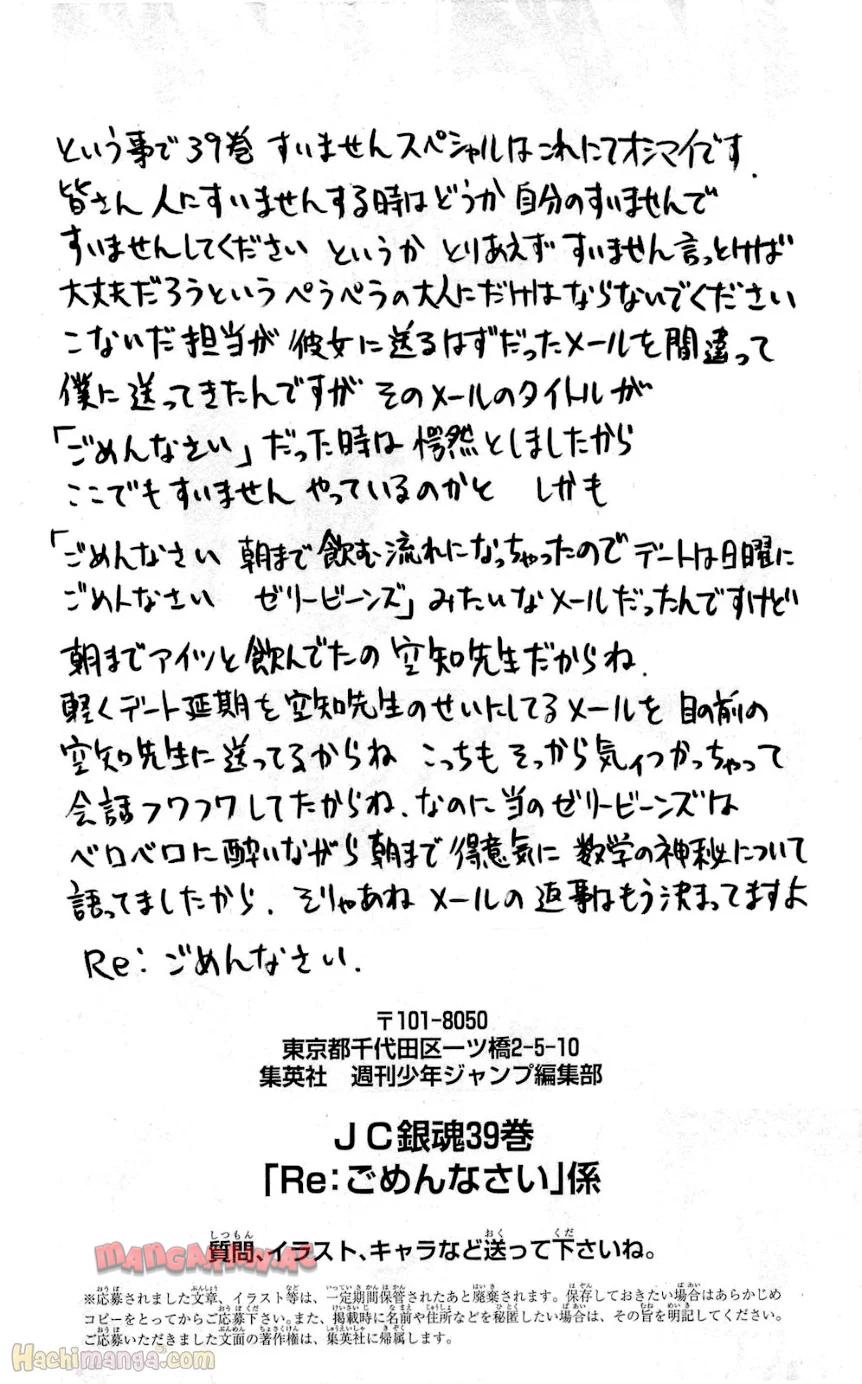 という事で39巻 すいませんスペシャルはこれにてオシマイです.
皆さん 人にすいませんする時はどうか 自分のすいませんで
すいませんしてください というか とりあえず すいません言っとけば
大丈夫だろうという ぺらぺらの大人にだけはならないでください
こないだ担当が 彼女に送るはずだったメールを間違って
僕に送ってきたんですが そのメールのタイトルが
「ごめんなさい」だった時は 愕然としましたから
ここでもすいません やっているのかと しかも
「ごめんなさい 朝まで飲む流れになっちゃったので デートは日曜に
ごめんなさい ゼリービーンズ」みたいなメールだったんですけど
朝までアイツと飲んでたの 空知先生だからね.
軽くデート延期を空知先生のせいにしてるメールを 目の前の
空知先生に送ってるからね こっちもそっから気ィつかっちゃって
会話フワフワしてたからね、なのに当のゼリービーンズは
ベロベロに酔いながら朝まで得意気に 数学の神秘について
語ってましたから. そりゃあね メールの返事はもう決まってますよ
Re: ごめんなさい.
〒101-8050
東京都千代田区一ツ橋2-5-10
集英社 週刊少年ジャンプ編集部
JC銀魂39巻
「Re:ごめんなさい」係
質問、イラスト、キャラなど送って下さいね。
※応募されました文章、イラスト等は、一定期間保管されたあと廃棄されます。保存しておきたい場合はあらかじめ
コピーをとってからご応募下さい。また、掲載時に名前や住所などを秘匿したい場合は、その旨を明記してください。
ご応募いただきました文面の著作権は、集英社に帰属します。
Hachimanga.com